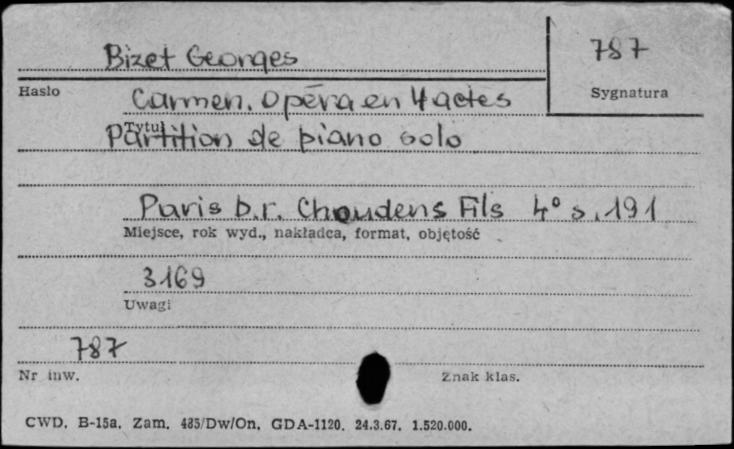 Bizet Georges
787
Hasło
Sygnatura
Carmen. Opéra en 4 actes
Tytuł
Partition de piano solo
Paris b.r. Choudens Fils 4° s. 191
Miejsce, rok wyd., nakładca, format, objętość
3169
Uwagi
787
Nr inw.
Znak klas.
CWD. B-15a. Zam. 485/Dw/On. GDA-1120. 24.3.67. 1.520.000.